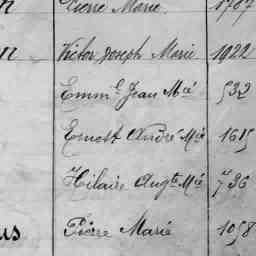 Pierre Marie 1787
n Victor Joseph Marie 1922
Emm.l Jean Mie 532
Ernest André Mie 1615
Hilaire Augte Mie 736
us Pierre Marie 1058